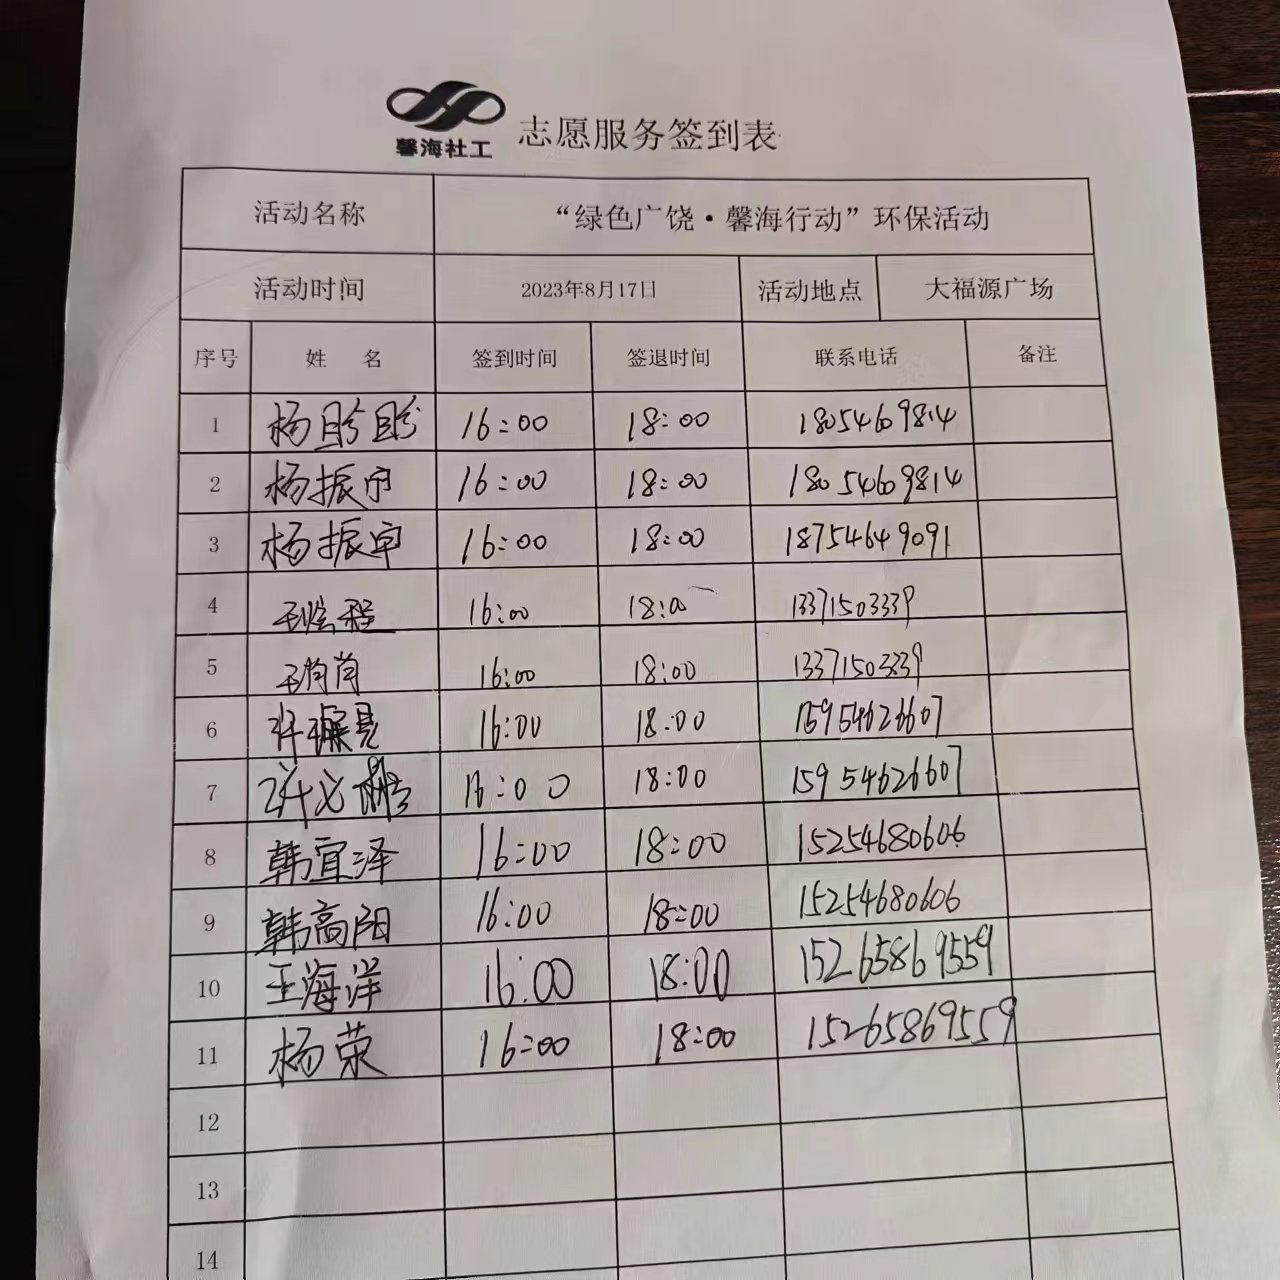 馨海社工 志愿服务签到表
活动名称 “绿色广饶·馨海行动”环保活动
活动时间 2023年8月17日 活动地点 大福源广场
序号 姓 名 签到时间 签退时间 联系电话 备注
1 杨盼盼 16:00 18:00 18054609814
2 杨振 16:00 18:00 18054609814
3 杨振宇 16:00 18:00 18754649091
4 16:00 18:00 13371503339
5 16:00 18:00 13371503339
6 许 16:00 18:00 15954626607
7 许 16:00 18:00 15954626607
8 韩宜泽 16:00 18:00 15254680606
9 韩高阳 16:00 18:00 15254680606
10 王海洋 16:00 18:00 15265869559
11 杨荣 16:00 18:00 15265869559
12
13
14